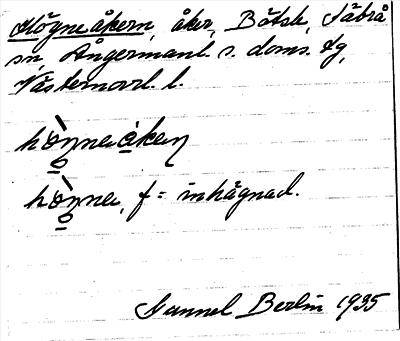 Högneåkern, åker, Bölsh, Säbrå
sn, Ångermanl. s. doms. fg,
Västernorrl. l.
hònneåkeṇ
hònne, f = inhägnad.
Gunnel Berlin 1935